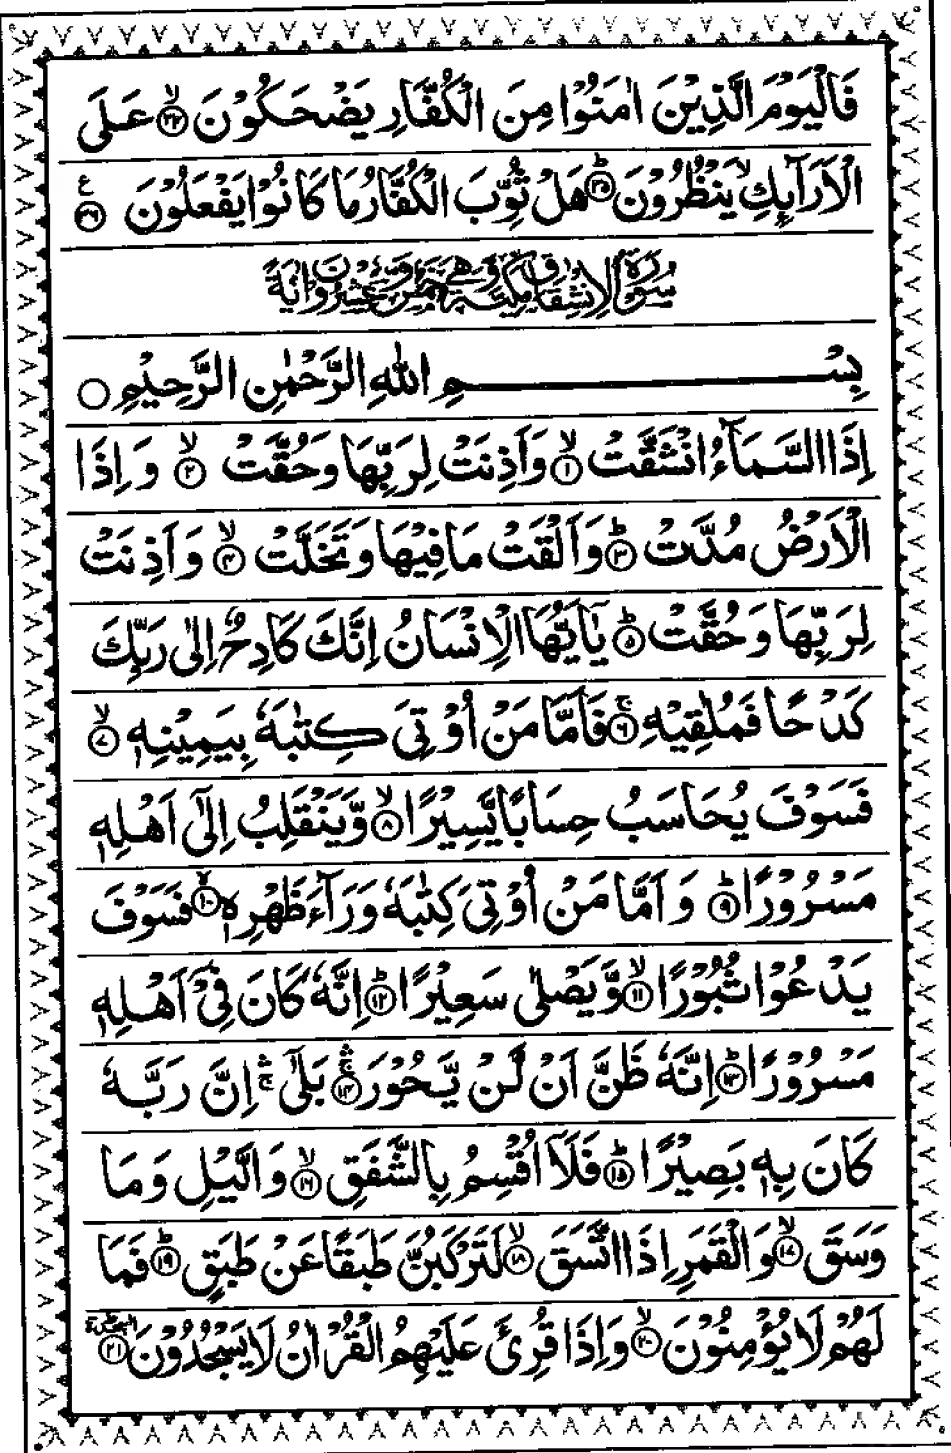 فَالْيَوْمَ الَّذِيْنَ اٰمَنُوْا مِنَ الْكُفَّارِ يَضْحَكُوْنَ ۙ﴿۳۴﴾ عَلَى
الْاَرَآىِٕكِ ۙ يَنْظُرُوْنَ ؕ﴿۳۵﴾ هَلْ ثُوِّبَ الْكُفَّارُ مَا كَانُوْا يَفْعَلُوْنَ ﴿۳۶﴾ ع
سُوْرَةُ الْاِنْشِقَاقِ مَكِّيَّةٌ وَّهِيَ خَمْسٌ وَّعِشْرُوْنَ اٰيَةً
بِسْمِ اللّٰهِ الرَّحْمٰنِ الرَّحِيْمِ ○
اِذَا السَّمَآءُ انْشَقَّتْ ۙ﴿۱﴾ وَاَذِنَتْ لِرَبِّهَا وَحُقَّتْ ۙ﴿۲﴾ وَاِذَا
الْاَرْضُ مُدَّتْ ؕ﴿۳﴾ وَاَلْقَتْ مَا فِيْهَا وَتَخَلَّتْ ۙ﴿۴﴾ وَاَذِنَتْ
لِرَبِّهَا وَحُقَّتْ ؕ﴿۵﴾ يٰۤاَيُّهَا الْاِنْسَانُ اِنَّكَ كَادِحٌ اِلٰى رَبِّكَ
كَدْحًا فَمُلٰقِيْهِ ۚ﴿۶﴾ فَاَمَّا مَنْ اُوْتِيَ كِتٰبَهٗ بِيَمِيْنِهٖ ۙ﴿۷﴾
فَسَوْفَ يُحَاسَبُ حِسَابًا يَّسِيْرًا ۙ﴿۸﴾ وَّيَنْقَلِبُ اِلٰٓى اَهْلِهٖ
مَسْرُوْرًا ؕ﴿۹﴾ وَاَمَّا مَنْ اُوْتِيَ كِتٰبَهٗ وَرَآءَ ظَهْرِهٖ ۙ﴿۱۰﴾ فَسَوْفَ
يَدْعُوْا ثُبُوْرًا ۙ﴿۱۱﴾ وَّيَصْلٰى سَعِيْرًا ؕ﴿۱۲﴾ اِنَّهٗ كَانَ فِيْٓ اَهْلِهٖ
مَسْرُوْرًا ؕ﴿۱۳﴾ اِنَّهٗ ظَنَّ اَنْ لَّنْ يَّحُوْرَ ۛۚ﴿۱۴﴾ بَلٰٓى ۛۚ اِنَّ رَبَّهٗ
كَانَ بِهٖ بَصِيْرًا ؕ﴿۱۵﴾ فَلَآ اُقْسِمُ بِالشَّفَقِ ۙ﴿۱۶﴾ وَالَّيْلِ وَمَا
وَسَقَ ۙ﴿۱۷﴾ وَالْقَمَرِ اِذَا اتَّسَقَ ۙ﴿۱۸﴾ لَتَرْكَبُنَّ طَبَقًا عَنْ طَبَقٍ ؕ﴿۱۹﴾ فَمَا
لَهُمْ لَا يُؤْمِنُوْنَ ۙ﴿۲۰﴾ وَاِذَا قُرِئَ عَلَيْهِمُ الْقُرْاٰنُ لَا يَسْجُدُوْنَ ؕ﴿۲۱﴾ السجدة